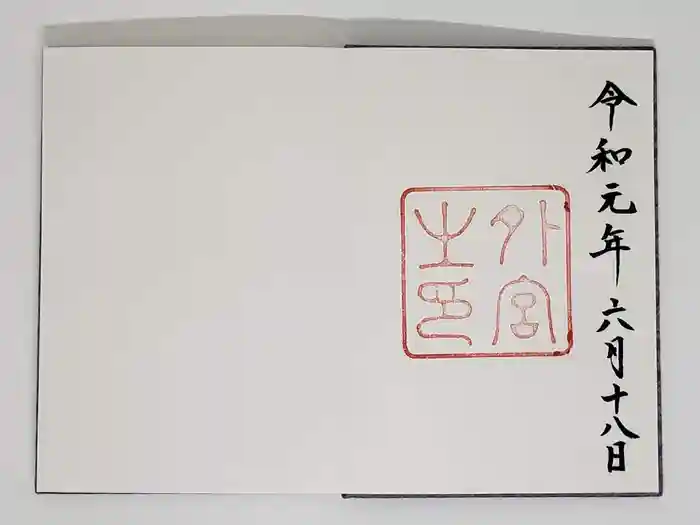 令和元年六月十八日
外宮
之印